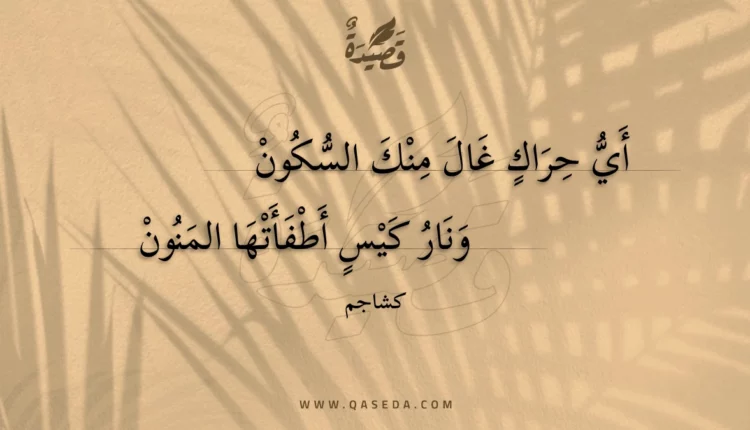 قَصِيْدَةٌ
أَيُّ حِرَاكٍ غَالَ مِنْكَ السُّكُونْ
وَنَارُ كَيْسٍ أَطْفَأَتْهَا المَنُونْ
كشاجم
WWW.QASEDA.COM